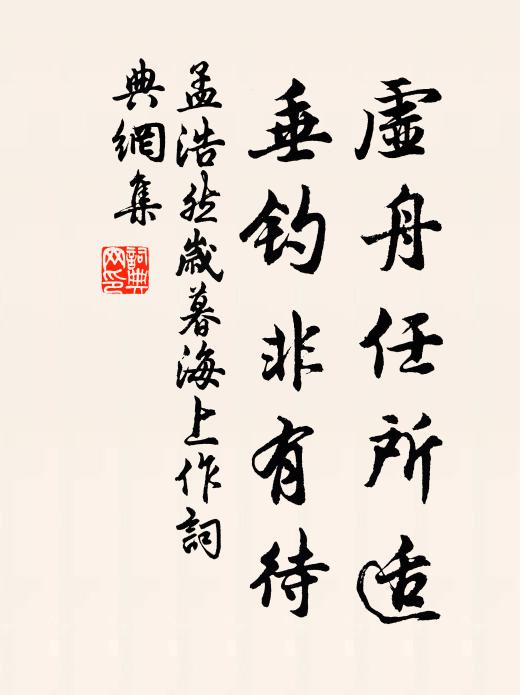 虛舟任所适
垂钓非有待
孟浩然歲暮海上作詞
典網集
詞典网印